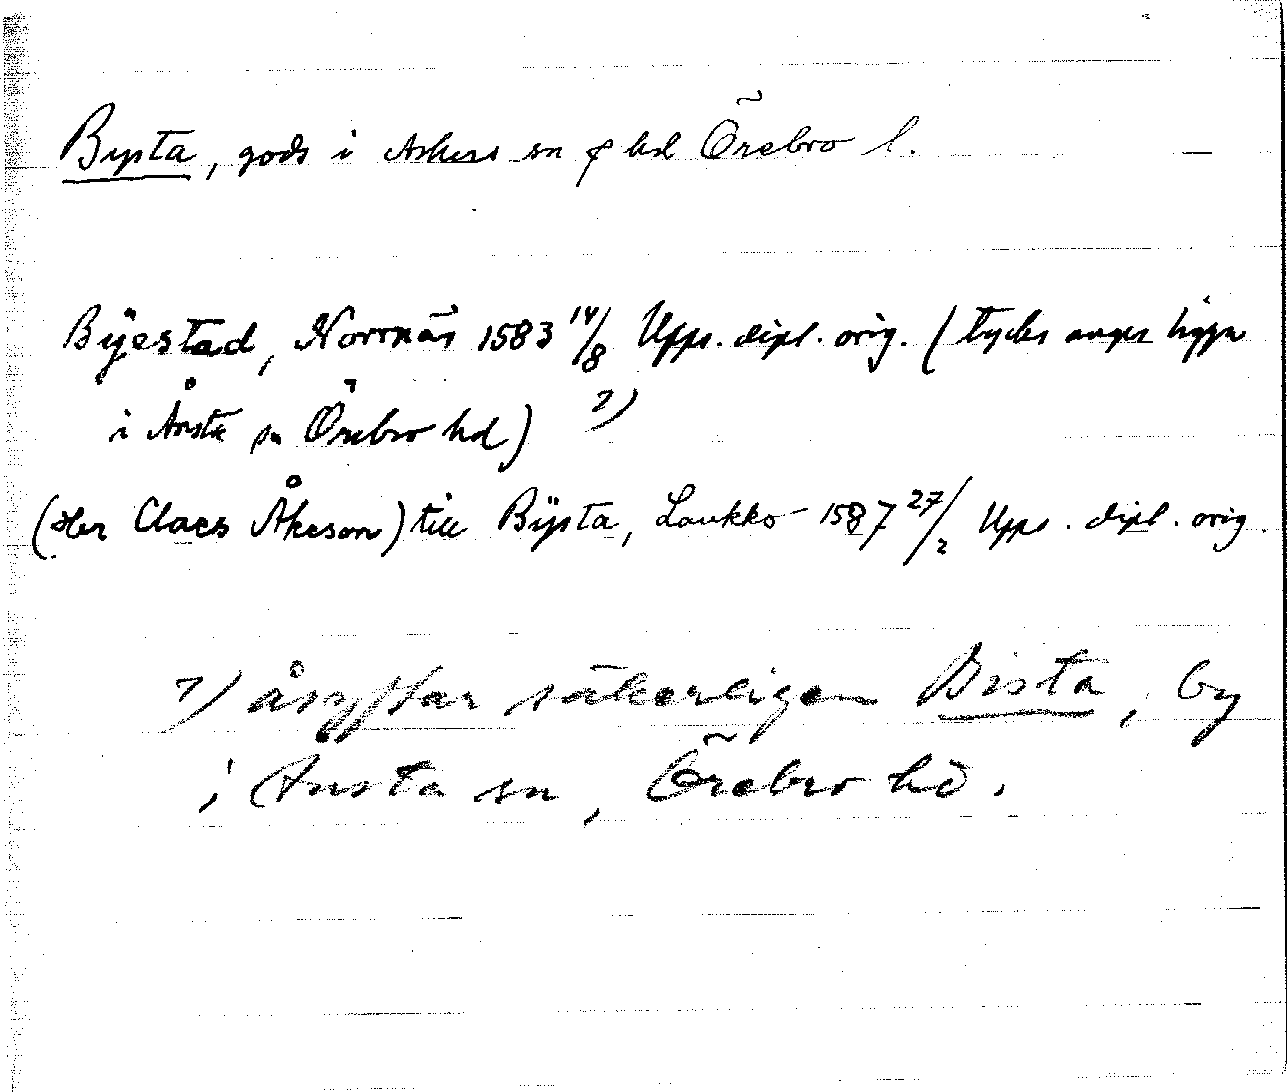 Bysta, gods i Askers sn & hd Örebro l.
Bÿestad, Norrnäs 1583 14/8 Upps. dipl. orig. (tycks anges ligga
i Ånsta sn Örebro hd) ?)
(Her Claes Åkeson) till Bÿsta, Laukko 1587 27/2 Upps. dipl. orig.
?) åsyftar säkerligen Bista, by
i Ånsta sn, Örebro hd.